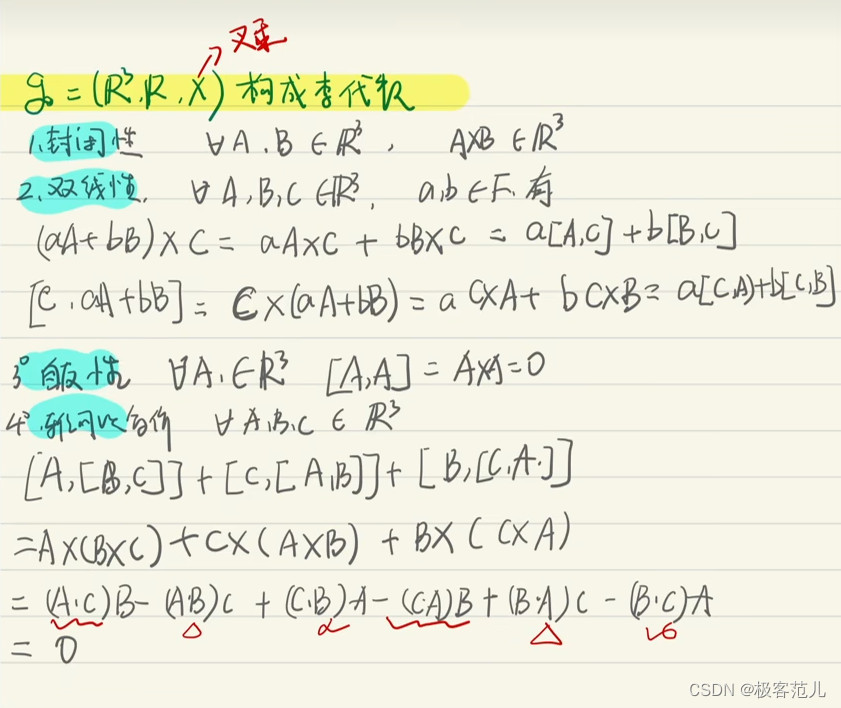 叉乘
g = (R³, R, ×) 构成李代数
1. 封闭性 ∀A, B ∈ R³, A×B ∈ R³
2. 双线性. ∀A, B, C ∈ R³, a, b ∈ F, 有
(aA+bB)×C = aA×C + bB×C = a[A,C] + b[B,C]
[C, aA+bB] = C×(aA+bB) = a C×A + b C×B = a[C,A)+b[C,B]
3° 自反性 ∀A. ∈ R³ [A,A] = A×A = 0
4° 雅可比等价 ∀A, B, C ∈ R³
[A,[B,C]] + [C,[A,B]] + [B,[C,A.]]
= A×(B×C) + C×(A×B) + B×(C×A)
= (A·C)B - (A·B)C + (C·B)·A - (C·A)B + (B·A)C - (B·C)·A
= 0
CSDN @极客范儿